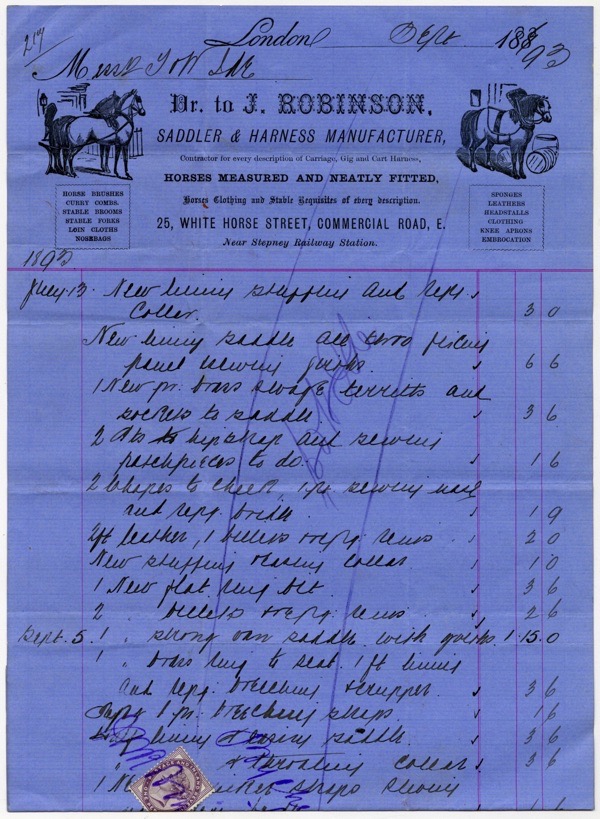 217
London Sept 1893
Mess
Dr. to J. ROBINSON,
SADDLER & HARNESS MANUFACTURER,
Contractor for every description of Carriage, Gig and Cart Harness,
HORSES MEASURED AND NEATLY FITTED,
Horses Clothing and Stable Requisites of every description.
25, WHITE HORSE STREET, COMMERCIAL ROAD, E.
Near Stepney Railway Station.
HORSE BRUSHES
CURRY COMBS.
STABLE BROOMS
STABLE FORKS
LOIN CLOTHS
NOSEBAGS
SPONGES
LEATHERS
HEADSTALLS
CLOTHING
KNEE APRONS
EMBROCATION
1893
13 New lining stuffing and repg
Collar 3 0
New lining saddle all
panel sewing girths 6 6
1 New pr. brass terretts and
sockets to saddle 3 6
2 hipstrap and sewing
patchpieces to do. 1 6
2 Chapes to cheek, sewing
and repg. bridle 1 9
2ft leather, 1 billets & repg reins 2 0
New stuffing & easing collar 1 0
1 New flat ring bit 3 6
2 " billets & repg reins 2 6
Sept. 5. 1 " strong van saddle with girths 1 15 0
1 " brass ring to seat 1 ft lining
and repg. breeching & crupper 3 6
1 pr. breeching straps 6
lining & easing saddle 3 6
& collar 3 6
1 straps